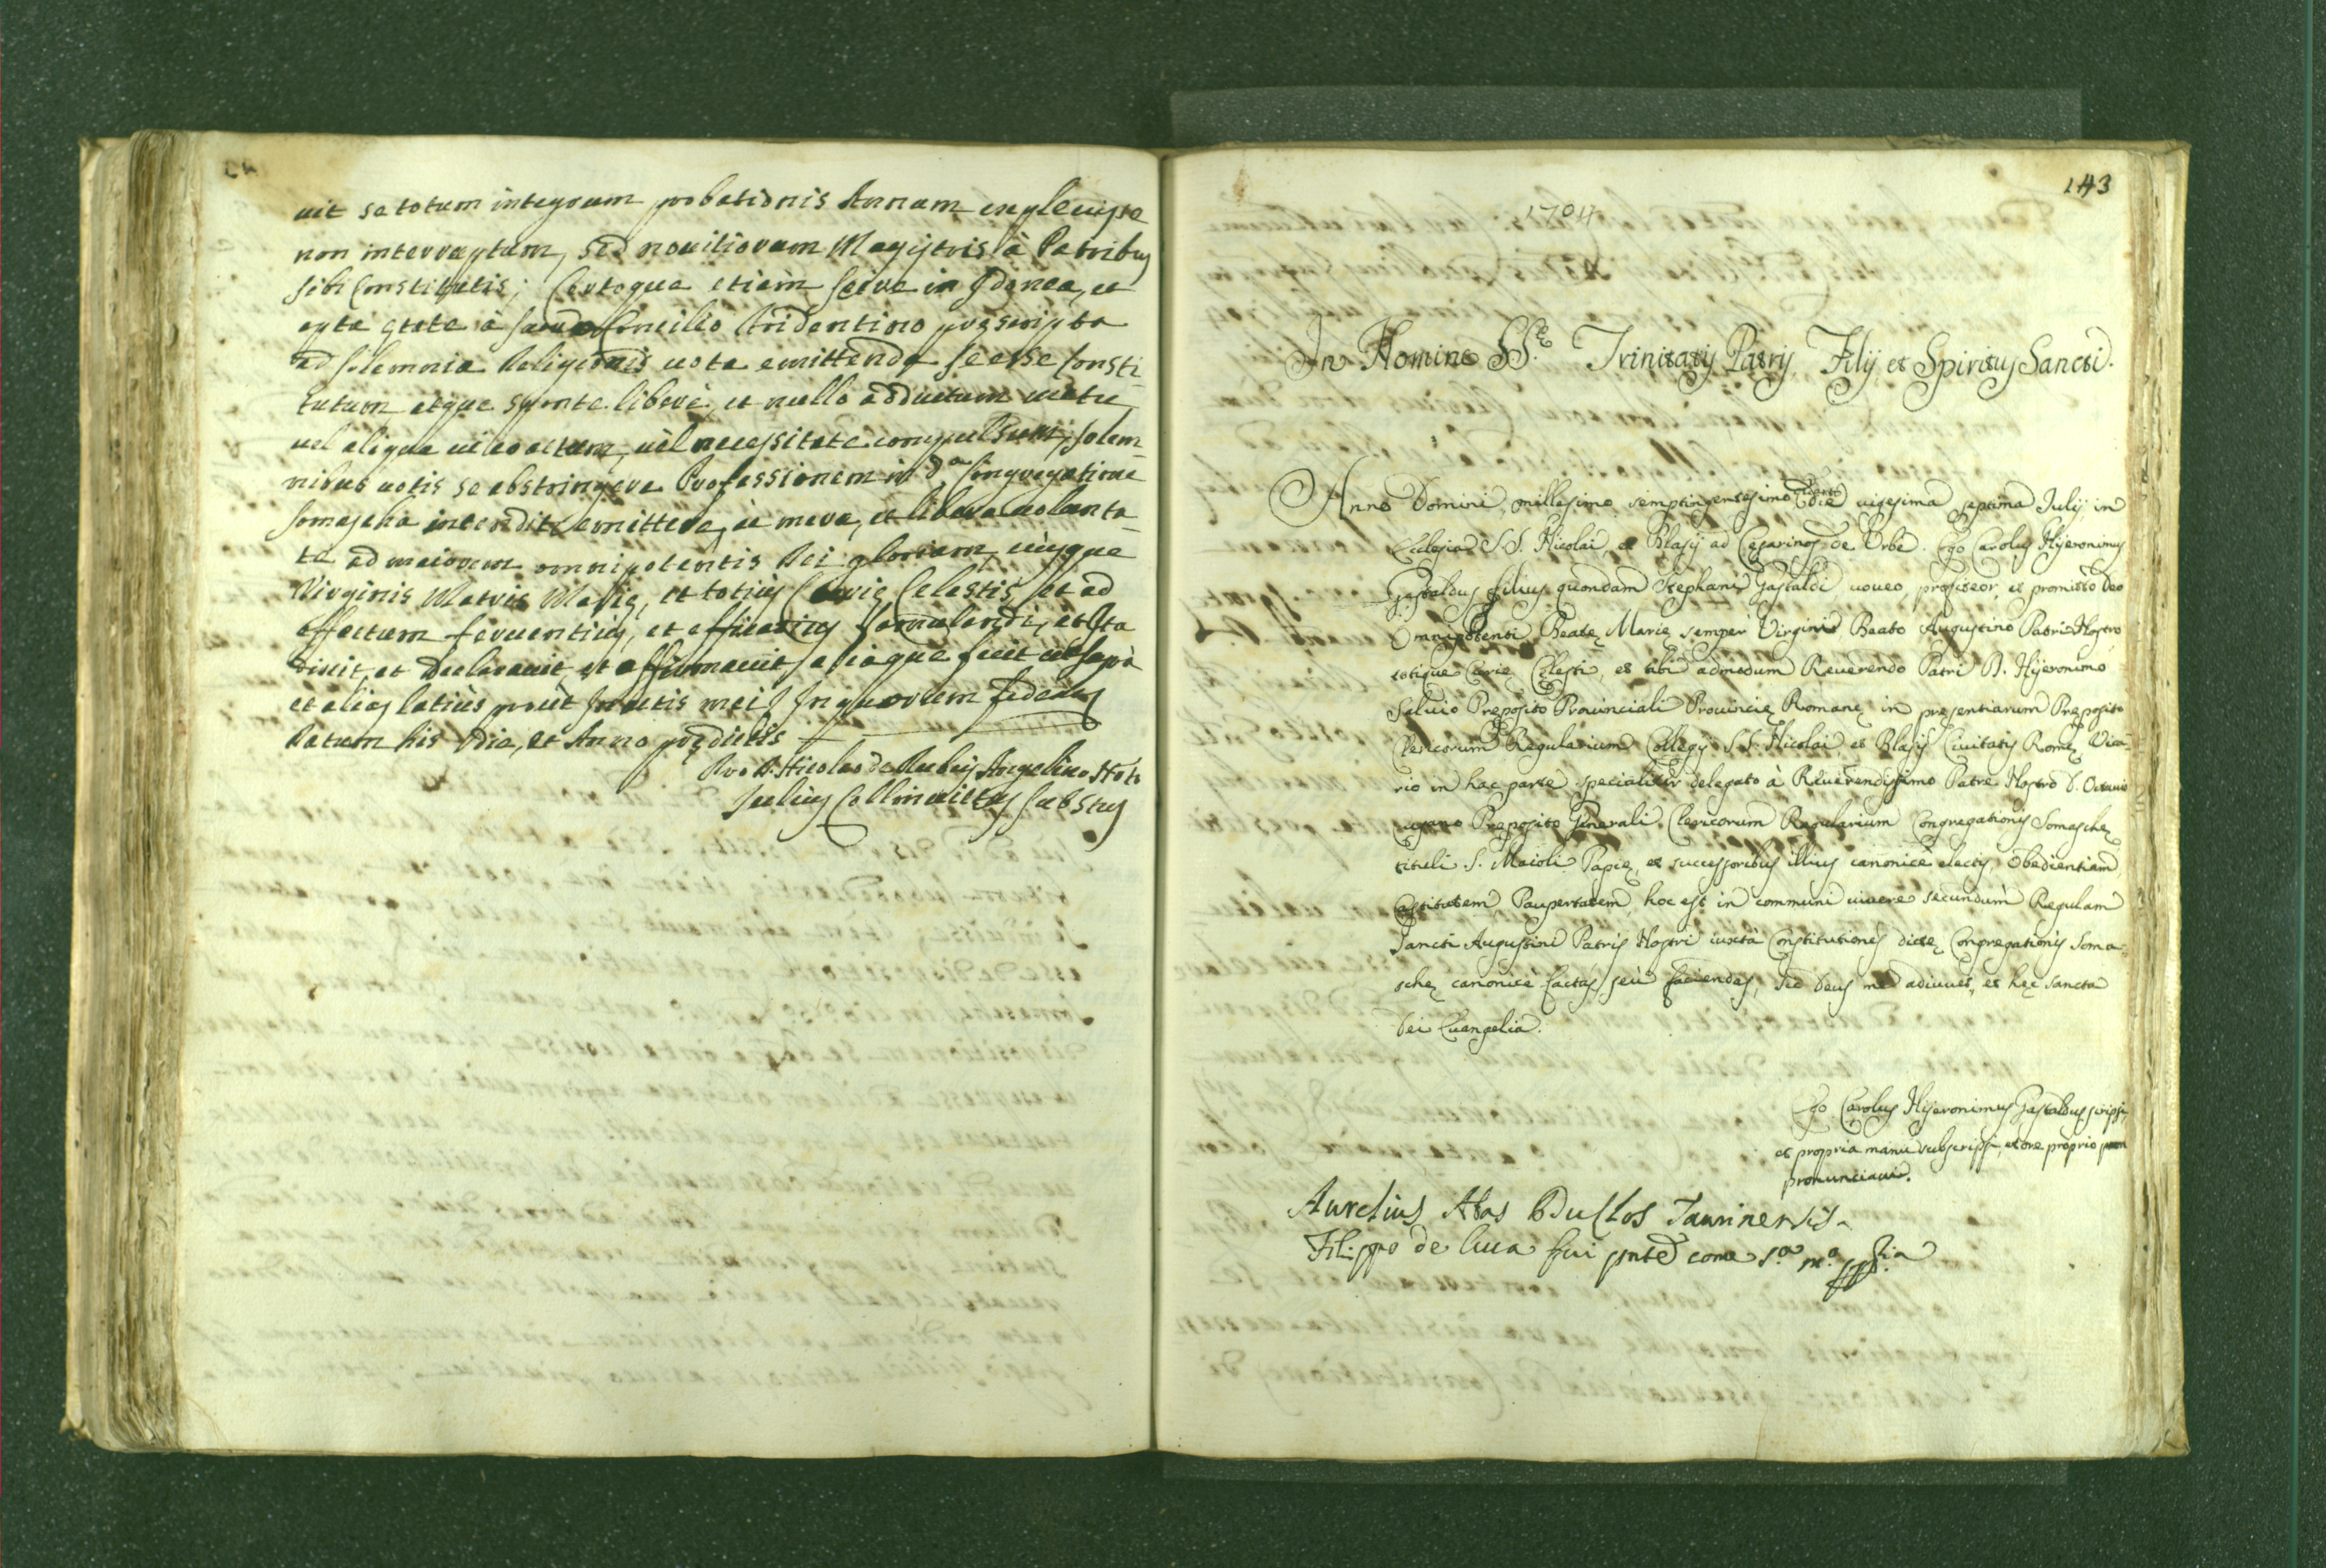 uit se totum integrum probationis Annum expleuisse
non interruptum, sed nouitiorum Magistris à Patribus
sibi Constitutis; Certoque etiàm scire in Idonea, et
apta ętate à Sacro Concilio Tridentino pręscripta
ad solemnia Religionis uota emittenda se esse Consti-
tutum atque sponte liberè, et nullo adductum metu
uel aliqua ui coactum, uèl necessitate compulsum, solem-
nibus uotis se abstringere Professionem in d.a Congregatione
Somascha intendit emittere, èx mera, et libera uolunta-
te ad maiorem omnipotentis Dei gloriam, eiusque
Virginis Matris Marię, et totius Curię Celestis, et ad
effectum feruentius, et efficacius famulandi, et Ita
dixit, et declarauit, et affirmauit aliàque fecit ut supà
et alias latiùs prout In actis meis In quorum fidem
Datum his Die, et Anno prędictis
Pro D. Nicolao de Rubeis Angelino Not.o
Julius Collinuittus Substus
143
1704
In Nomine SS.te Trinitatis Patris, Filij et Spiritus Sancti.
Anno Domini, millesimo, semptingentesimo quarto die uigesima septima Iulij in
Eclesia S.S. Nicolai, et Blasij ad Cęsarinos de Vrbe. Ego Carolus Hijeronimus
Gastaldus filius quondam Stephani Gastaldi uoueo, profiteor, et promitto Deo
Omnipotenti, Beatę Marię semper Virginis Beato Augustino Patri Nostro
totique Curię Cęlesti, et tibi admodum Reuerendo Patri D. Hijeronimo
Saluio Pręposito Prouinciali Prouincię Romanę in pręsentiarum Pręposito
Clericorum Regularium Collegij S.S. Nicolai, et Blasij Ciuitatis Romę Vica-
rio in hac parte specialiter delegato à Reuerendissimo Patre Nostro D. Octauio
Pręposito Generali Clericorum Regularium Congregationis Somaschę
tituli S. Maioli Papię, et successoribus illius canonicè electis, Obedientiam
Castitatem, Paupertatem, hoc est in communi uiuere secundum Regulam
Sancti Augustini Patris Nostri iuxtà Constitutiones dictę Congregationis Soma-
schę canonicè factas, seù faciendas, sic Deus me adiuuet, et hęc sancta
Dei Euangelia.
Ego Carolus Hijeronimus Gastaldus scripsi,
et propria manu subscripsi, et ore proprio
pronunciaui.
Aurelius Duclos Taurinensis
Filippo de luca fui pnte come s.a m.o ppria